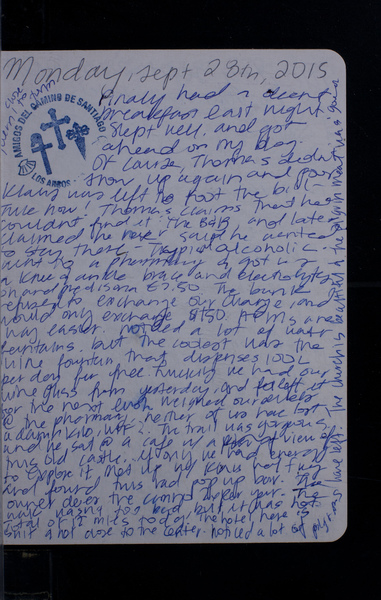 Monday, sept 28th, 2015
AMIGOS DEL CAMINO DE SANTIAGO
LOS ARCOS
Finally had a decent
breakfast last night
slept well, and got
ahead on my blog.
Of course Thomas didn't
show up again and poor
Klaus was left to foot the bill-
Thomas claims that he
couldn't find the B&B and later
claimed he never said he wanted
to stay there - typical alcoholic
went to a pharmacy & got
a knee & ankle brace and electrolytes
on hand €7.50 The bank
refused to exchange our change, and
would only exchange $150. ATMs are
way easier. noticed a lot of water
fountains, but the coolest was the
wine fountain that dispenses 100L
per day for free. luckily we had our
wine glass from yesterday, and left it
for the next. Even weighed ourselves
@ the pharmacy, neither of us have lost
a damn kilo, wtf. The trail was gorgeous,
and we sat @ a cafe w/ a view of
this old castle. if only we had energy
to explore it. Met up w/ Klaus half way
and found this rad pop up bar. The
owner does the camino every year. The
walk wasn't too bad, but it was hot
total of 12 miles today. The hotel here is
shit & not close to the center. noticed a lot of
The church is beautiful & the pilgrim meal was good